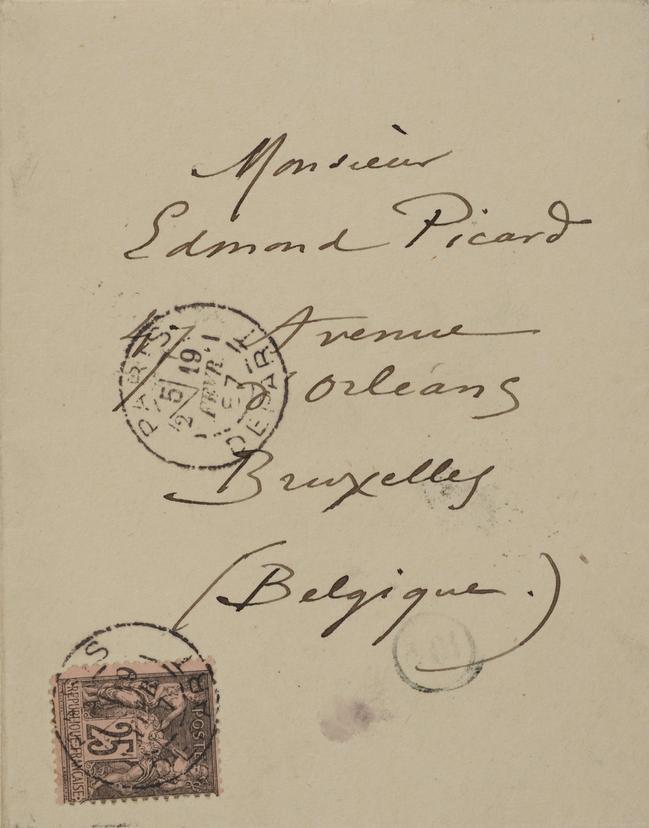 Monsieur
Edmond Picard
47 Avenue
d'Orléans
Bruxelles
(Belgique.)
PARIS
DEPART
5
19
FEVR
25
POSTES
REPUBLIQUE FRANÇAISE